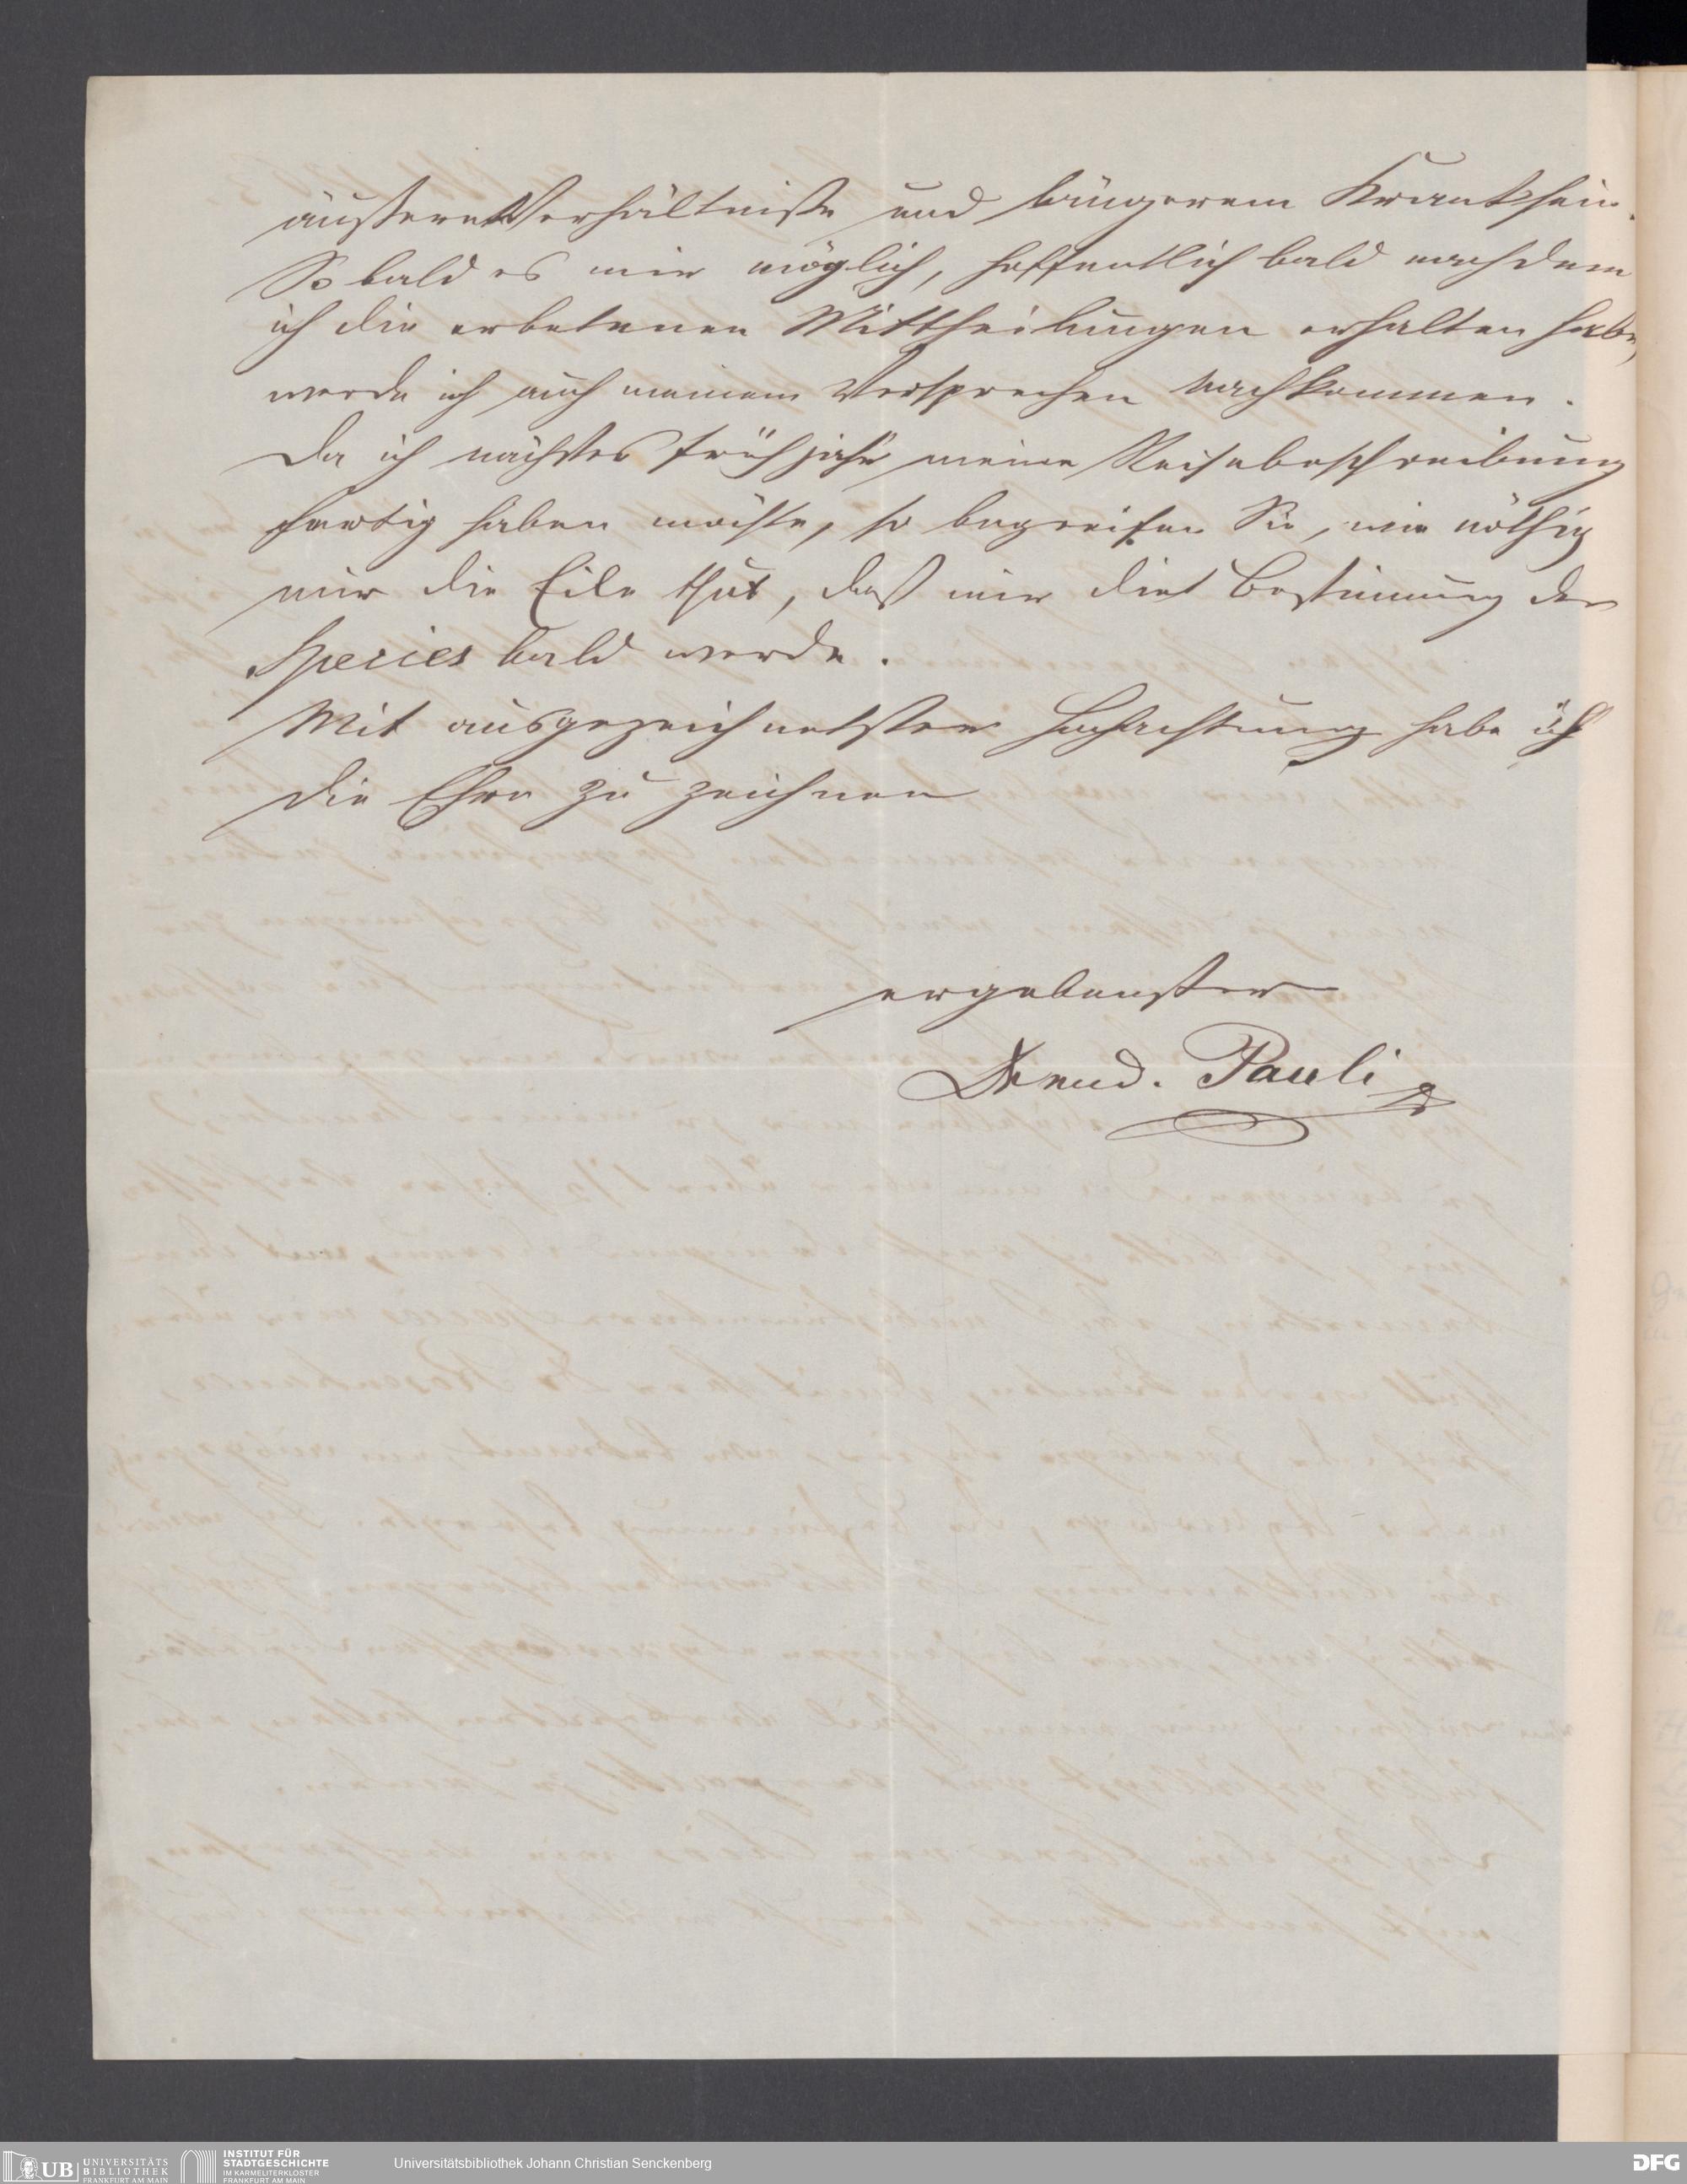 äußeren Verhältniße und längerem Kranksein.
So bald es mir möglich, hoffentlich bald nachdem
ich die erbetenen Mittheilungen erhalten habe,
werde ich auch meinem Versprechen nachkommen.
Da ich nächstes Frühjahr meine Reisebeschreibung
fertig haben möchte, so begreifen Sie, wie nöthig
mir die Eile thut, daß mir die Bestimmung der
Species bald werde.
Mit ausgezeichnetster Hochachtung habe ich
die Ehre zu zeichnen
ergebenster
Dr med. Pauli
UB UNIVERSITÄTS
BIBLIOTHEK
FRANKFURT AM MAIN
INSTITUT FÜR
STADTGESCHICHTE
IM KARMELITERKLOSTER
FRANKFURT AM MAIN
Universitätsbibliothek Johann Christian Senckenberg
DFG